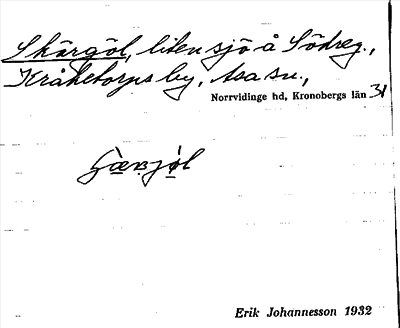 Skärgöl, liten sjö å Södreg.,
Kråketorps by, Asa sn.,
Norrvidinge hd, Kronobergs län 31
Erik Johannesson 1932